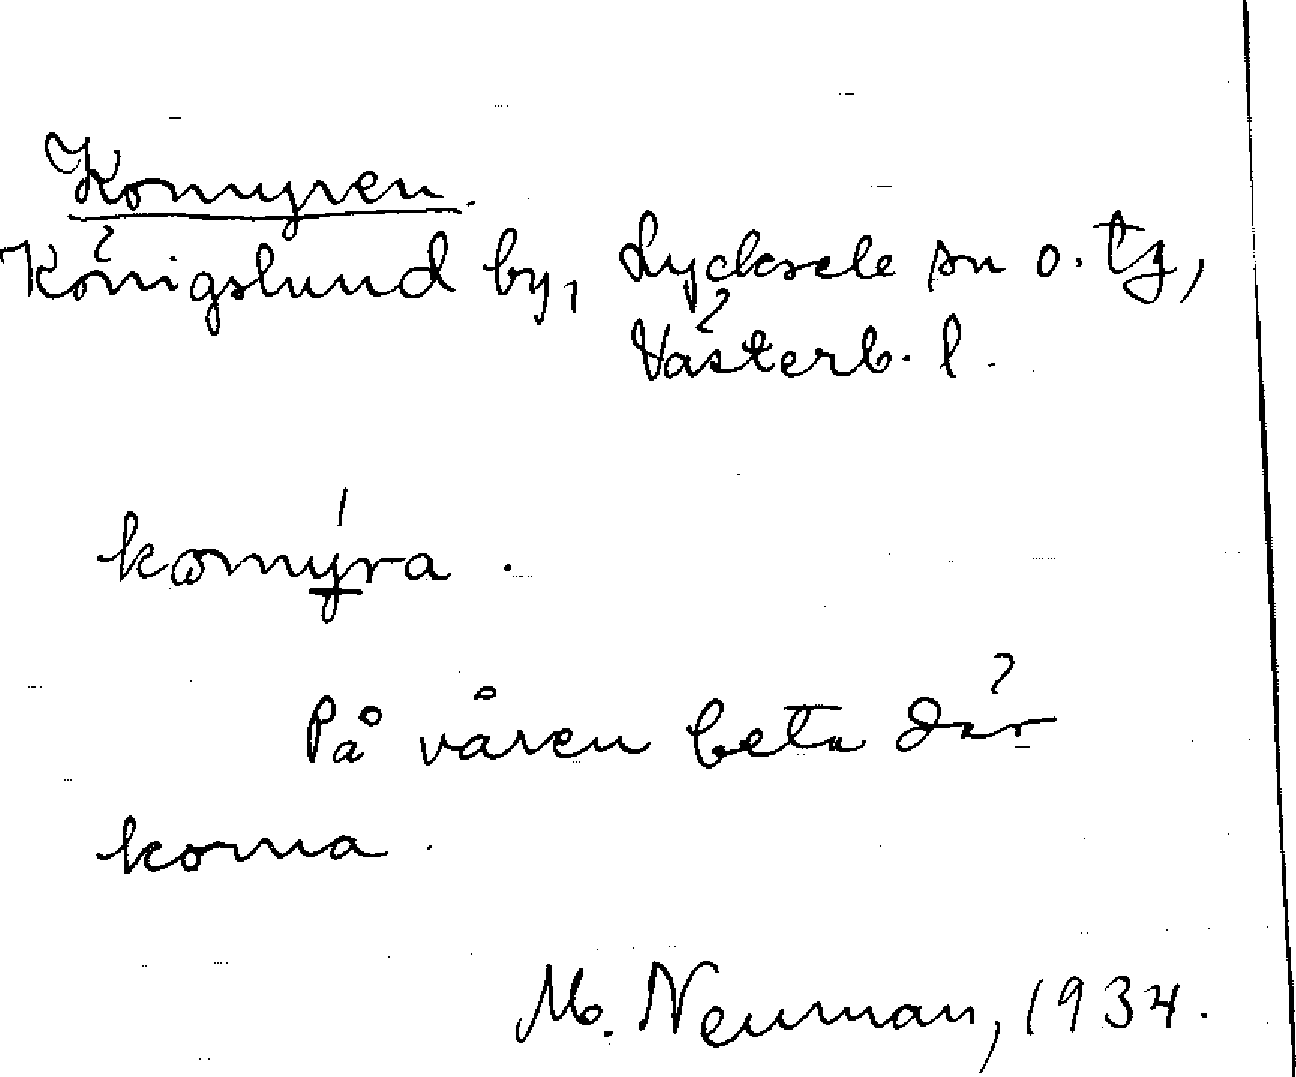 Komyren.
Königslund by, Lycksele sn o. tg,
Västerb. l.
komýra.
På våren beta där
korna.
M. Neuman, 1934.